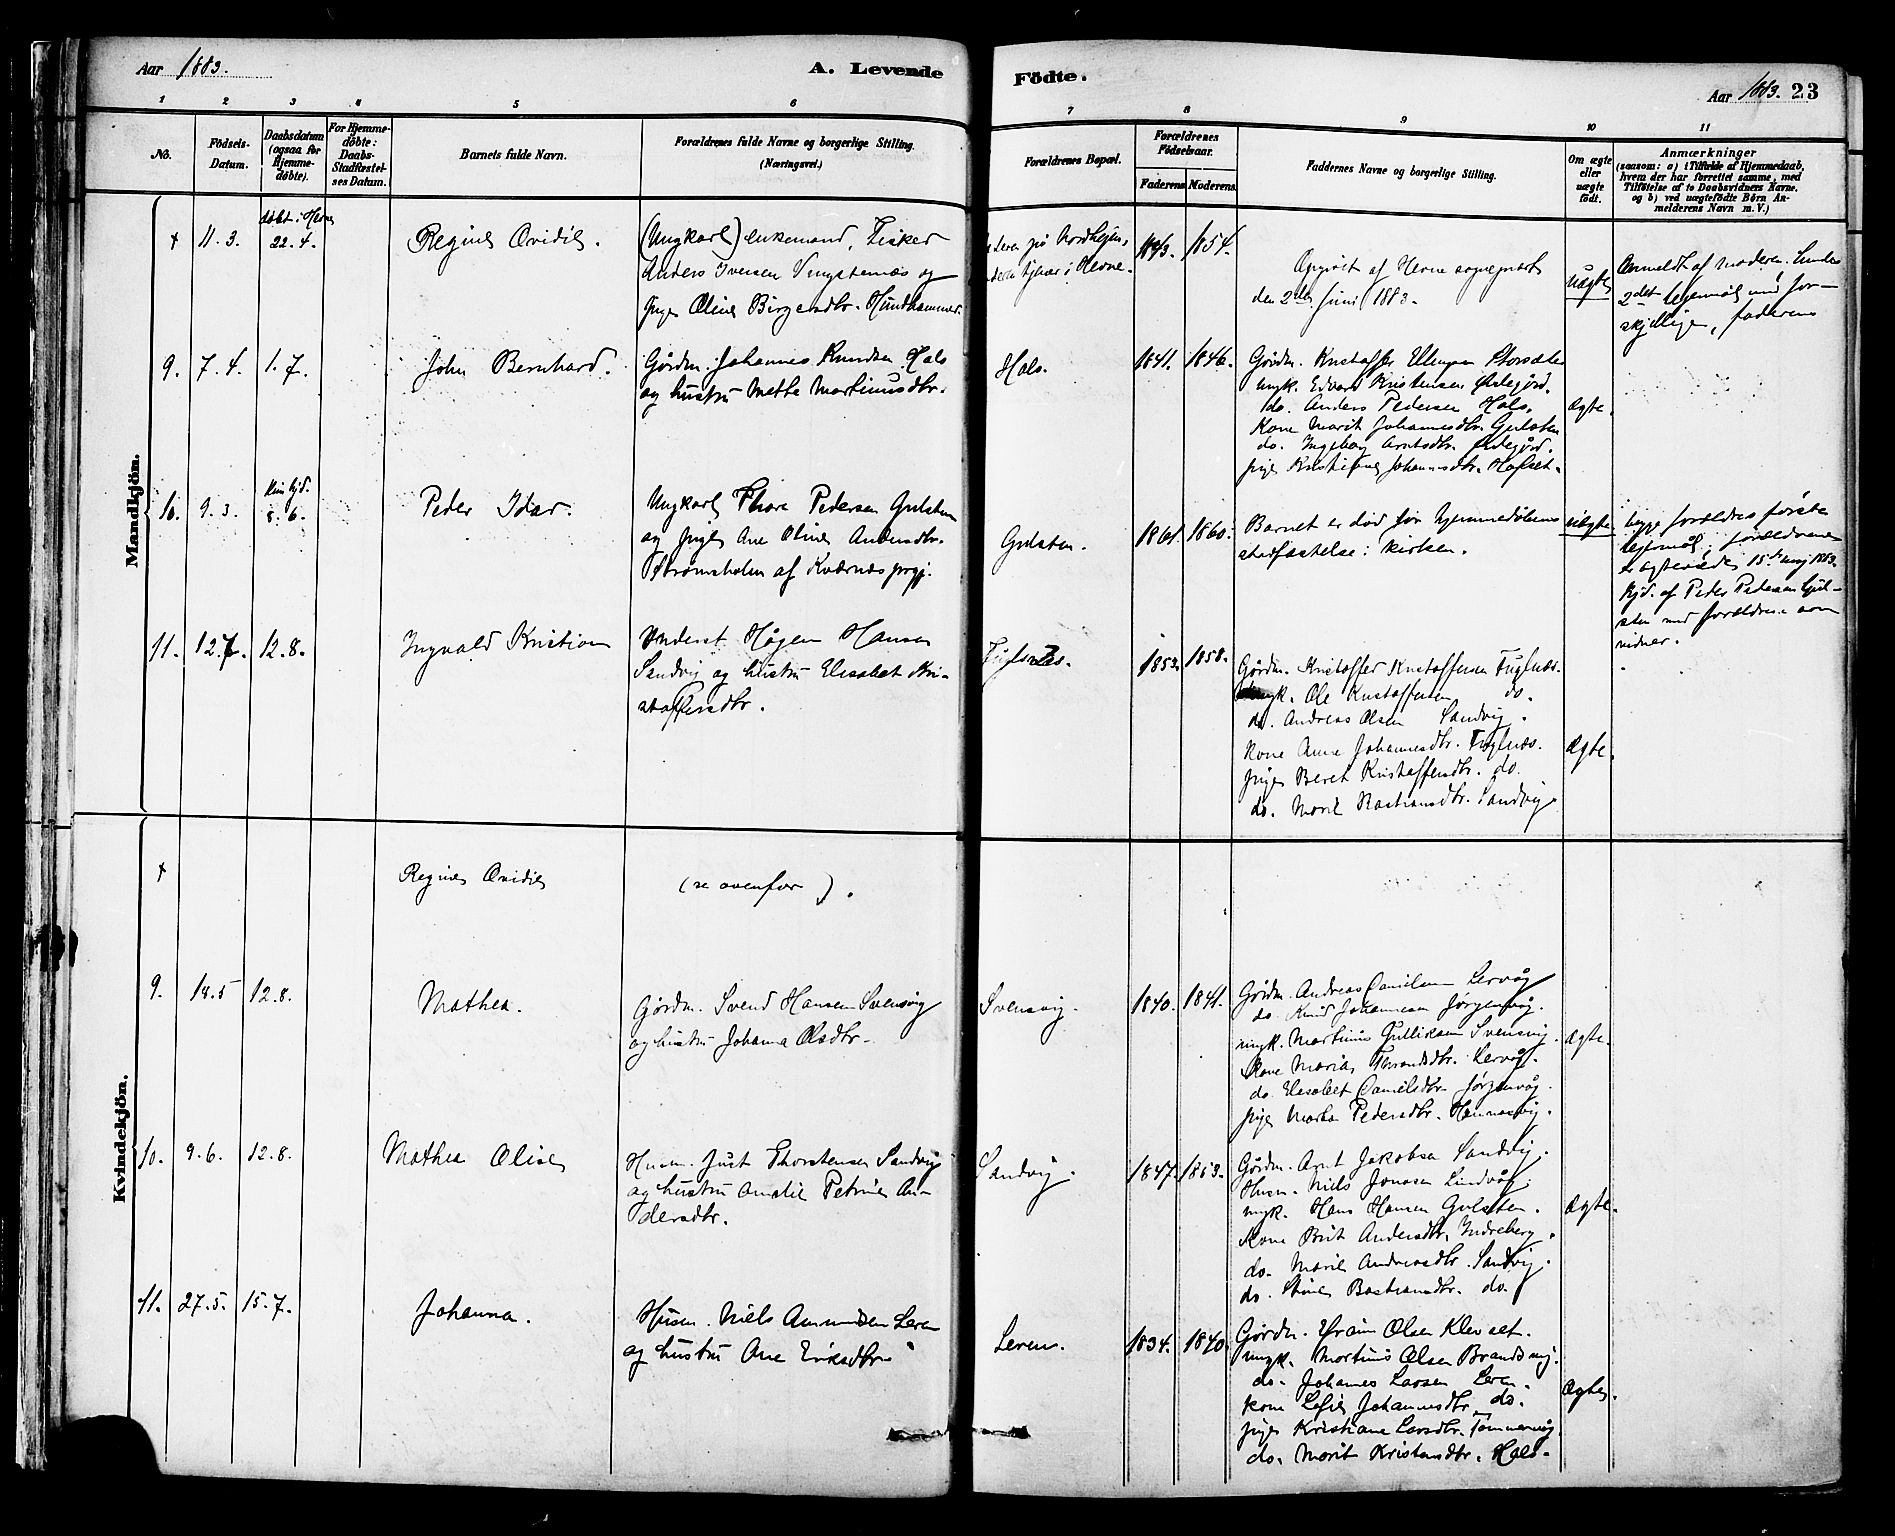 Aar 1883.
A. Levende
Födte.
Aar 1883. 23
1 2 3 4 5 6 7 8 9 10 11
No.
Födsels-
Datum.
Daabsdatum
(ogsaa for
Hjemme-
döbte).
For Hjemme-
döbte:
Daabs-
Stadfæstel-
ses Datum.
Barnets fulde Navn.
Forældrenes fulde Navne og borgerlige Stilling.
(Næringsvei.)
Forældrenes Bopæl.
Forældrenes
Födselsaar.
Faderens Moderens.
Faddernes Navne og borgerlige Stilling.
Om ægte
eller
uægte
født.
Anmærkninger
(saasom: a) i Tilfælde af Hjemmedaab,
hvem der har forrettet samme, med
Tilföielse af to Daabsvidners Navne.
og b) ved uægtefödte Börn An-
melderens Navn m. V.)
Mandkjön.
døbt i Hevne
+ 11. 3. 22. 4.
Regine Ovidie.
(Ungkarl) enkemand, Fisker
Anders Iversen Vingsternæs og
pige Oline Birgersdtr. Hundhammer.
Leren på Nordheim,
tjener i Hevne.
1843. 1854.
Opgivet af Hevne sogneprest
den 2den Juni 1883.
uægte
Anmeldt af moderen.
2det leiermål med for-
skjellige, faderens
9. 7. 4. 1. 7.
John Bernhard.
Gårdm. Johannes Knudsen Hals
og hustru Mette Martinusdtr.
Hals.
1841. 1846.
Gårdm. Kristoffer Ellingsen Storsæter
ungk. Edvard Kristensen Østegård.
do. Anders Pedersen Hals.
Kone Marit Johannesdtr. Gulsten
do. Ingeborg Arntsdtr. Østegård.
pige Kristiane Johannesdtr. Hafset.
Ægte.
10. 9. 3. 8. 6.
Peder Idar.
Ungkarl Thore Pedersen Gulsten
og pige Ane Oline Andersdtr.
Strømsholm af Kværnes prgj.
Gulsten.
1861. 1860.
Barnet er død før hjemmedåbens
stadfæstelse i kirken.
uægte
begge forældres første
leiermål; forældrene
ægteviede 15de maj 1883.
Hjd. af Peder Pedersen Gul-
sten med forældrene som
vidner.
11. 12. 7. 12. 8.
Ingvald Kristian
Inderst Høgen Hansen
Sandvig og hustru Elisabet Kri-
stoffersdtr.
Fuglnæs.
1853. 1858.
Gårdm. Kristoffer Kristoffersen Fuglnæs.
ungk. Ole Kristoffersen do.
do. Andreas Olsen Sandvig.
Kone Anne Johannesdtr. Fuglnæs.
pige Beret Kristoffersdtr. do.
do. Marit Bastiansdtr. Sandvig.
Ægte.
Kvindekjön.
+
Regine Ovidie
(se ovenfor).
9. 14. 5 12. 8.
Mathea.
Gårdm. Svend Hansen Svensvig
og hustru Johanna Olsdtr.
Svensvig.
1840. 1841.
Gårdm. Andreas Danielsen Lervåg
do. Knud Johannesen Jørgenvåg.
ungk. Martinus Gulliksen Svensvig.
Kone Maria Thrandsdtr. Lervåg.
do. Elisabet Danielsdtr. Jørgenvåg.
pige Marta Pedersdtr. Hennasvig.
Ægte.
10. 9. 6. 12. 8.
Mathea Olise
Husm. Just Thorstensen Sandvig
og hustru Amalie Petrine An-
dersdtr.
Sandvig.
1847. 1853.
Gårdm. Arnt Jakobsen Sandvig.
Husm. Niels Jonasen Lindvåg.
ungk. Hans Hansen Gulsten.
Kone Brit Andersdtr. Indreberg.
do. Marie Andreasdtr. Sandvig.
do. Stine Bastiansdtr. do.
Ægte.
11. 27. 5. 15. 7.
Johanna.
Husm. Niels Amundsen Leren
og hustru Ane Eriksdtr.
Leren.
1834. 1840.
Gårdm. Efraim Olsen Klevset.
ungk. Martinus Olsen Brandsvig.
do. Johannes Larsen Leren.
kone Sofie Johannesdtr. do.
pige Kristiane Larsdtr. Tømmervåg
do. Marit Kristensdtr. Hals.
Ægte.